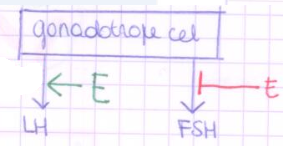 gonadotrope cel
E
t
LH FSH